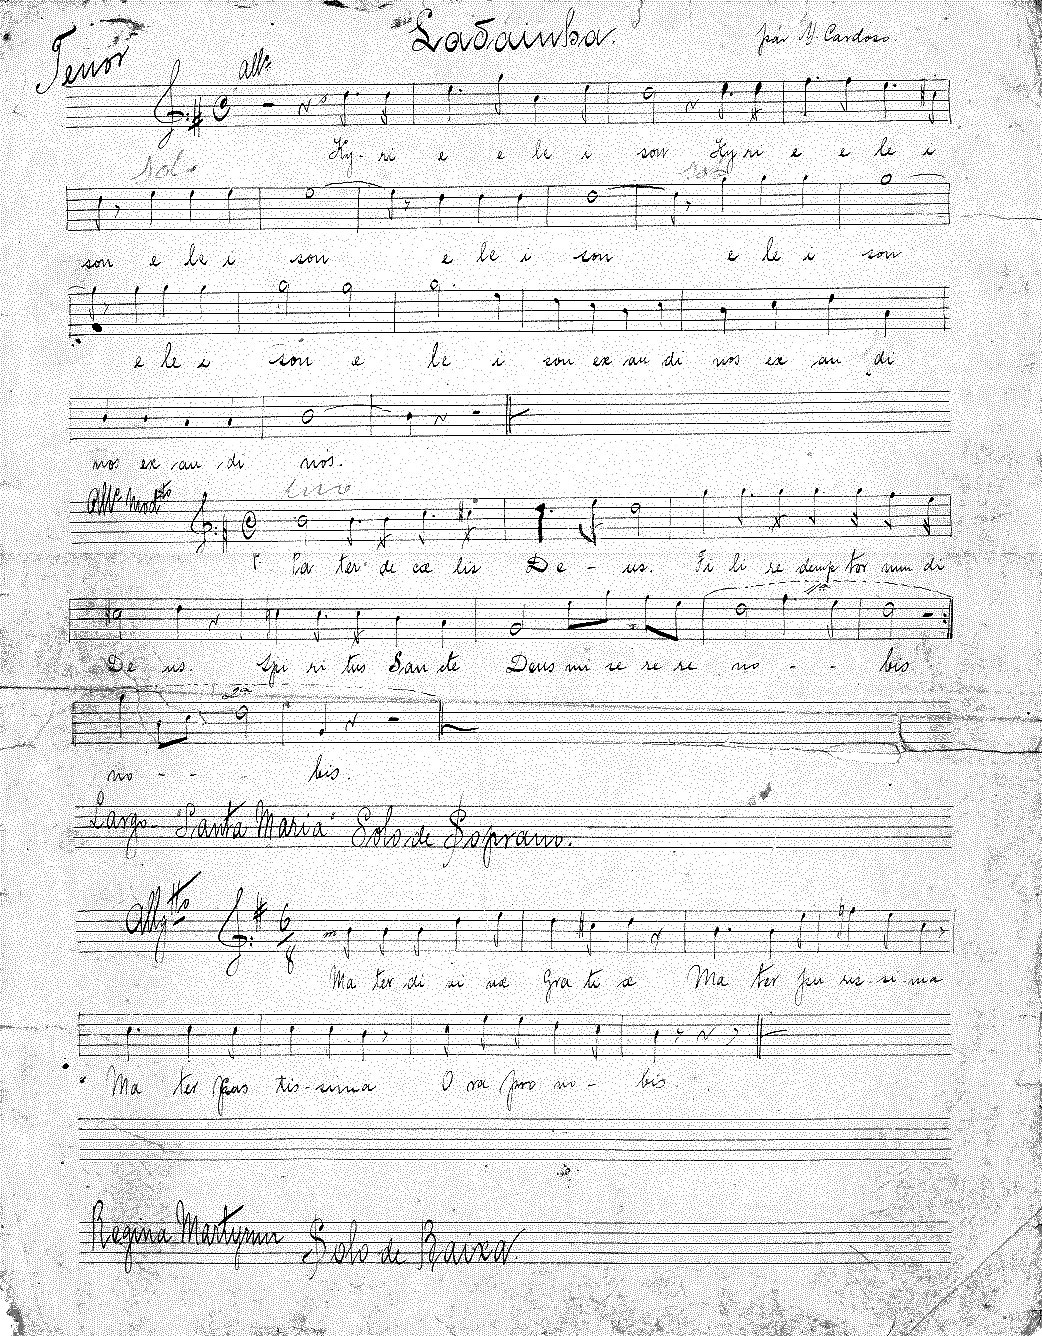 Tenor
Ladainha.
por M. Cardoso
Allº
Ky- ri e e le i son Ky ri e e le i
sol
son e le i son e le i son e le i son
e le i son e le i son ex au di nos ex au di
nos ex au di nos.
Allº Modto
Pa ter de cæ lis De - us. Fi li re demp tor mun di
De us. Spi ri tus San cte Deus mi se re re no - - bis
2ª
no - - - bis.
Largo "Santa Maria" Solo de Soprano.
Allgtto
6/8
Ma ter di vi næ Gra ti æ Ma ter pu ris-si-ma
Ma ter cas tis-sima O ra pro no - bis.
Regina Martyrum Solo de Baixo